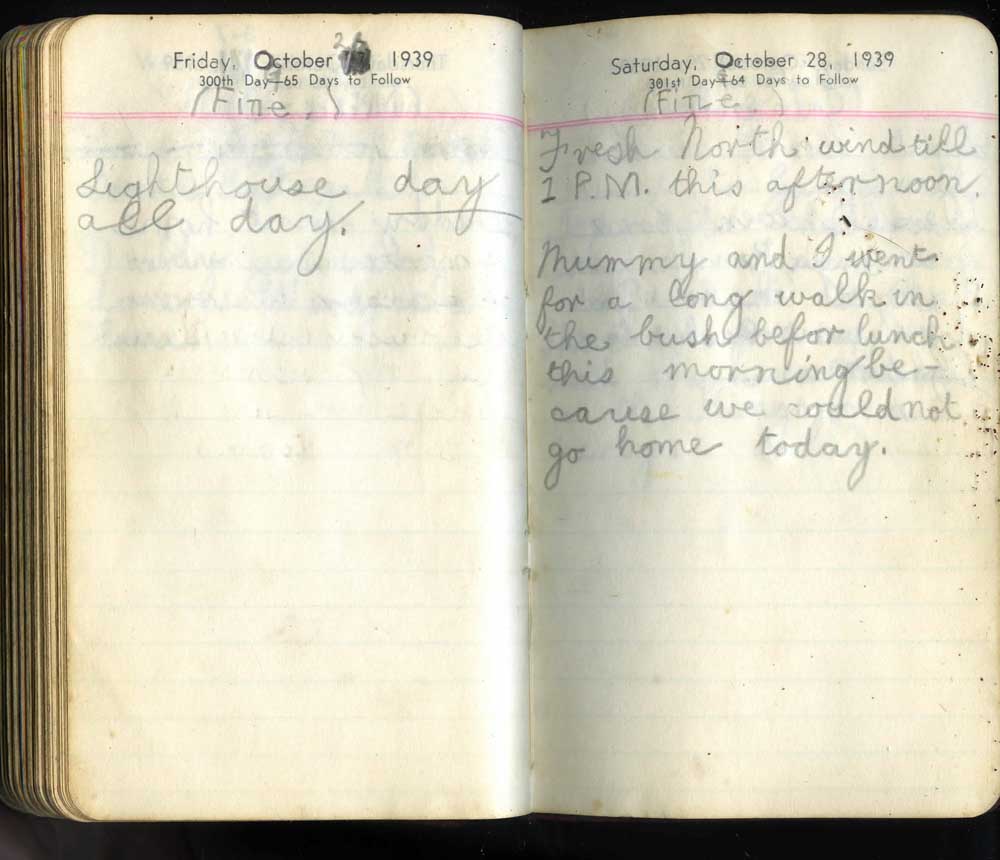 26
Friday, October 1939
300th Day—65 Days to Follow
(Fine.)
Lighthouse day
all day.
Saturday, October 28, 1939
301st Day—64 Days to Follow
(Fine)
Fresh North wind till
1 P.M. this afternoon.
Mummy and I went
for a long walk in
the bush befor lunch
this morning be-
cause we could not
go home today.